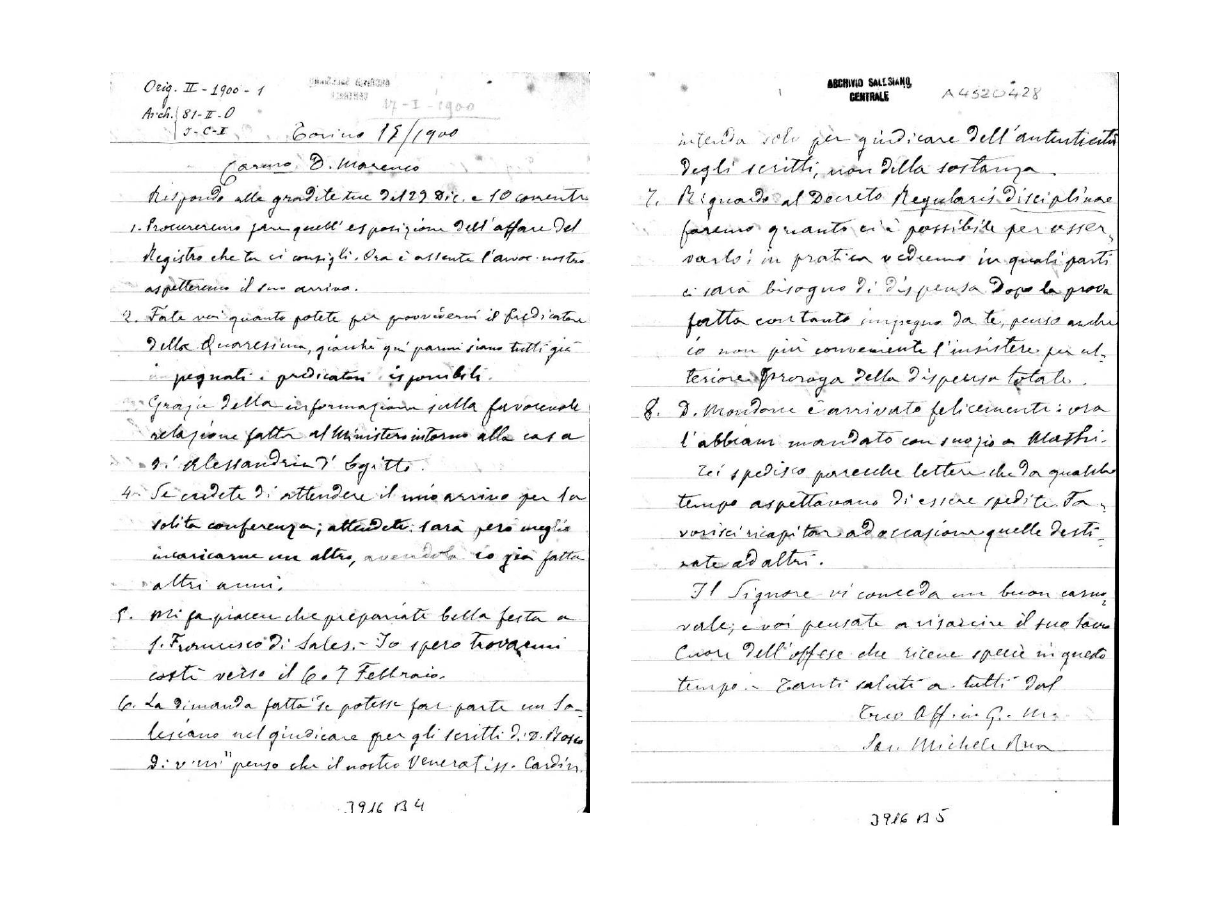 Orig. II - 1900 - 1
Arch. 81-II-O
J-C-I
17-I-1900
Torino 15/1900
Carmo D. Marenco
Rispondo alle gradite tue del 29 Dic. e 10 corrente
1. Procureremo fare quell'esposizione dell'affare del
Registro che tu ci consigli. Ora è assente l'avvoc. nostro
aspetteremo il suo arrivo.
2. Fate voi quanto potete per provvedervi il Predicatore
della Quaresima, giacchè qui parmi siano tutti già
impegnati i predicatori disponibili.
Grazie della informazione sulla favorevole
relazione fatta al Ministero interno alla casa
d'Alessandria d'Egitto.
4. Se credete di attendere il mio arrivo per la
solita conferenza; attendete: sarà però meglio
incaricarne un altro, avendola io già fatta
altri anni.
5. Mi fa piacere che prepariate bella festa a
S. Francesco di Sales. - Io spero trovarmi
costì verso il 6 o 7 Febbraio.
6. La dimanda fatta "se potesse far parte un Sa-
lesiano nel giudicare per gli scritti di D. Bosco
" penso che il nostro Veneratiss. Cardin.
3916 B 4
ARCHIVIO SALESIANO
CENTRALE
A4520428
intenda solo per giudicare dell'autenticità
degli scritti, non della sostanza.
7. Riguardo al Decreto Regularis disciplinae
faremo quanto ci è possibile per osser-
varlo: in pratica vedremo in quali parti
ci sarà bisogno di dispensa. Dopo la prova
fatta con tanto impegno da te, penso anche
io non più conveniente l'insistere per ul-
teriore proroga della dispensa totale.
8. D. Mondone è arrivato felicemente: ora
l'abbiam mandato con suo zio a Mathi.
Ti spedisco parecchie lettere che da qualche
tempo aspettavano di essere spedite. Fa-
vorisci ricapitar ad occasione quelle desti-
nate ad altri.
Il Signore vi conceda un buon carno-
vale; e voi pensate a risarcire il suo Sacro
Cuore dell'offese che riceve specie in questo
tempo. - Tanti saluti a tutti dal
Tuo Aff. in G. M.
Sac. Michele Rua
3916 B 5